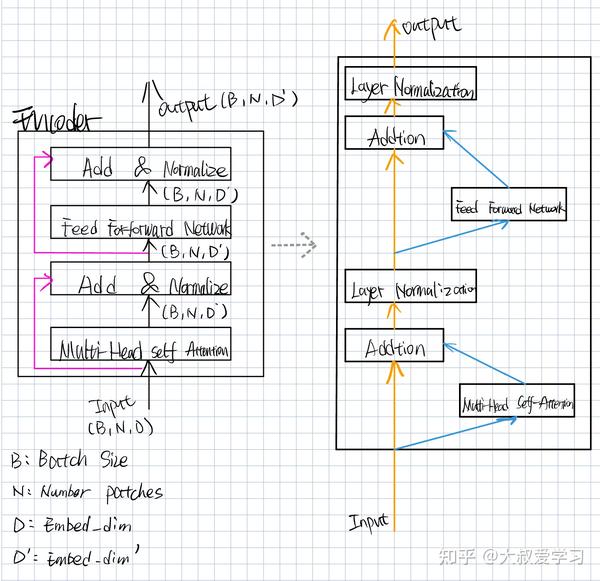 Encoder
output (B, N, D')
Add & Normalize
(B, N, D')
Feed Forforward Network
(B, N, D')
Add & Normalize
(B, N, D')
Multi-Head self Attention
Input
(B, N, D)
B: Batch Size
N: Number patches
D: Embed_dim
D': Embed_dim'
output
Layer Normalization
Addtion
Feed Forward Network
Layer Normalization
Addtion
Multi-Head Self-Attention
Input
知乎 @大叔爱学习